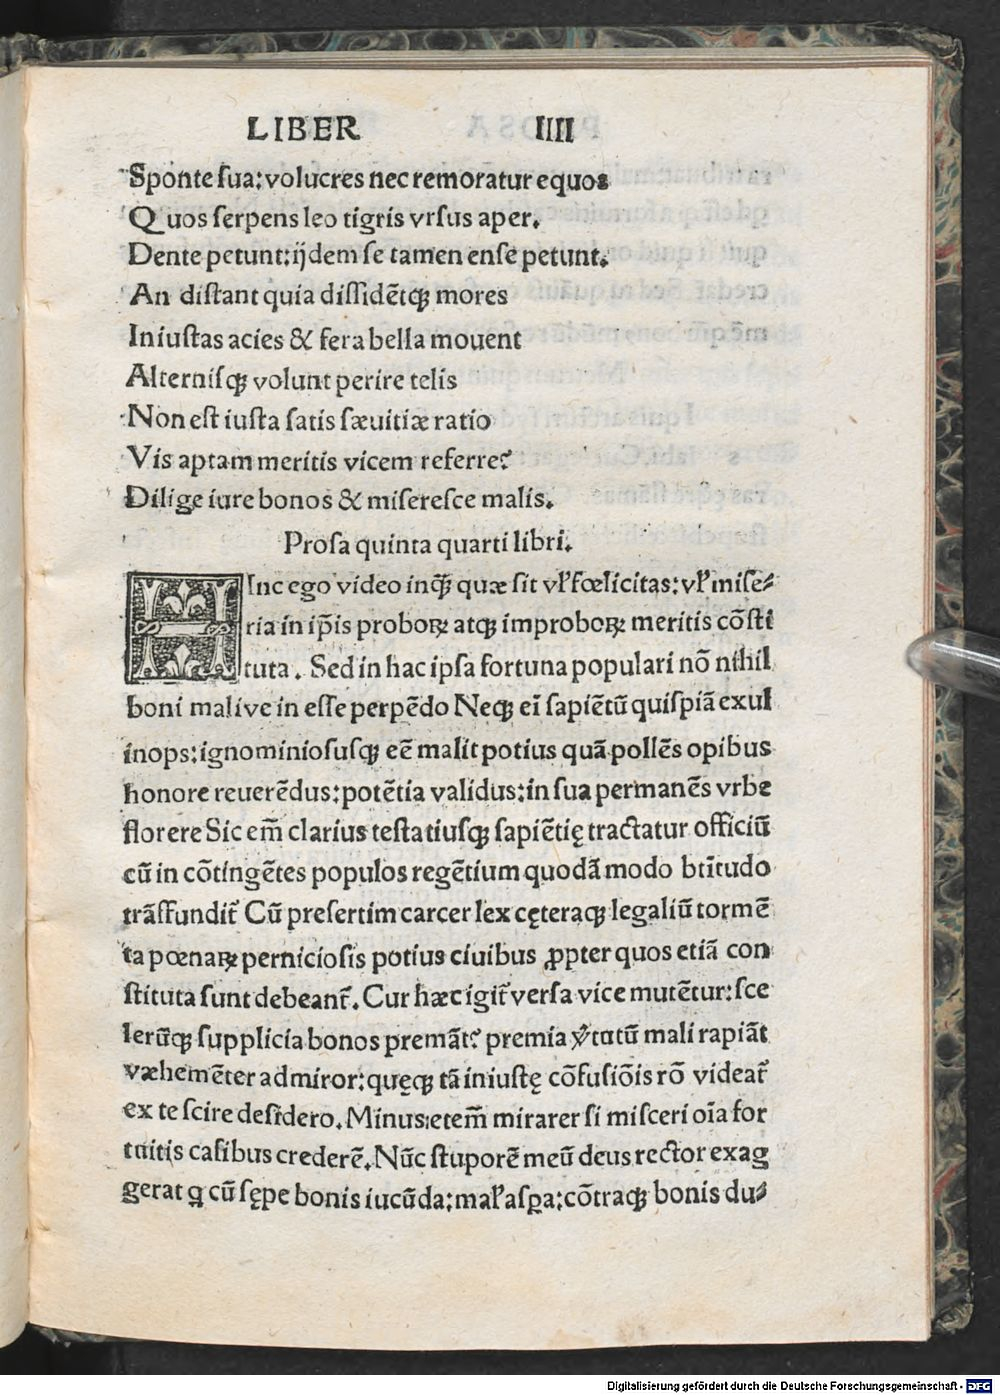 LIBER IIII
Sponte ſua: volucres nec remoratur equos
Quos ſerpens leo tigris vrſus aper.
Dente petunt: ijdem ſe tamen enſe petunt.
An diſtant quia diſſidẽtqꝫ mores
Iniuſtas acies & fera bella mouent
Alterniſqꝫ volunt perire telis
Non eſt iuſta ſatis ſæuitiæ ratio
Vis aptam meritis vicem referre?
Dilige iure bonos & miſereſce malis.
Proſa quinta quarti libri.
HInc ego video inqꝫ̃ quæ ſit vl̓ fœlicitas: vl̓ miſe⸗
ria in ip̃is proboꝝ atqꝫ improboꝝ meritis cõſti
tuta. Sed in hac ipſa fortuna populari nõ nihil
boni mali ve in eſſe perpẽdo Neqꝫ ei̅ ſapiẽtũ quiſpiã exul
inops: ignominioſuſqꝫ eẽ malit potius quã pollẽs opibus
honore reuerẽdus: potẽtia validus: in ſua permanẽs vrbe
florere Sic em̃ clarius teſtatiuſqꝫ ſapiẽtię tractatur officiũ
cũ in cõtingẽtes populos regẽtium quodã modo bti̅tudo
trãſfundit᷑ Cũ preſertim carcer lex cęteraqꝫ legaliũ tormẽ
ta pœnaꝝ pernicioſis potius ciuibus ꝓpter quos etiã con
ſtituta ſunt debeant᷑. Cur hæc igit᷑ verſa vice mutẽtur: ſce
lerũqꝫ ſupplicia bonos premãt? premia v̓tutũ mali rapiãt
væhemẽter admiror: quęqꝫ tã iniuſtę cõfuſiõis rõ videat᷑
ex te ſcire deſidero. Minus: etem̃ mirarer ſi miſceri oĩa for
tuitis caſibus crederẽ. Nũc ſtuporẽ meũ deus rector exag
gerat ꝗ cũ ſępe bonis iucũda: mal̓ aſꝑa: cõtraqꝫ bonis du⸗
Digitalisierung gefördert durch die Deutsche Forschungsgemeinschaft - DFG